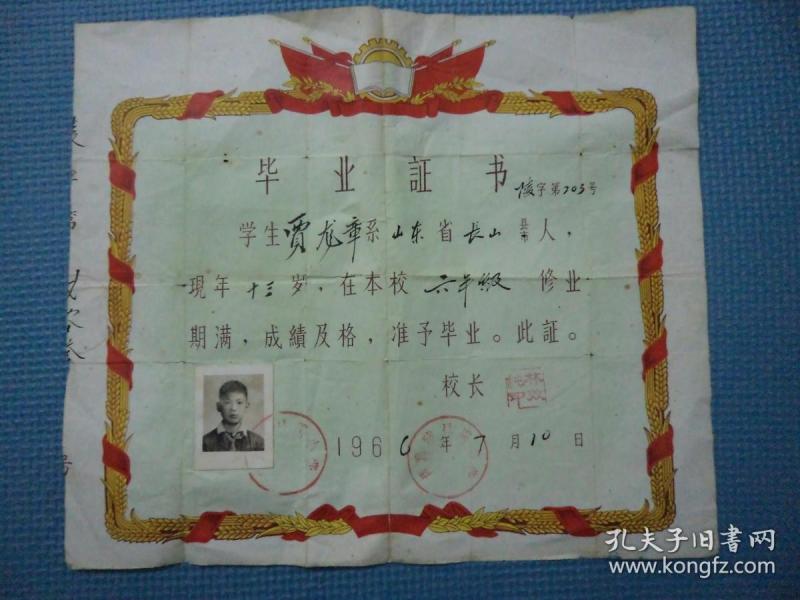 毕业証书
字第703号
学生賈龙章系山东省長山县市人，
現年十三岁，在本校六年級修业
期满，成績及格，准予毕业。此証。
校长
1960年7月10日
孔夫子旧书网
www.kongfz.com